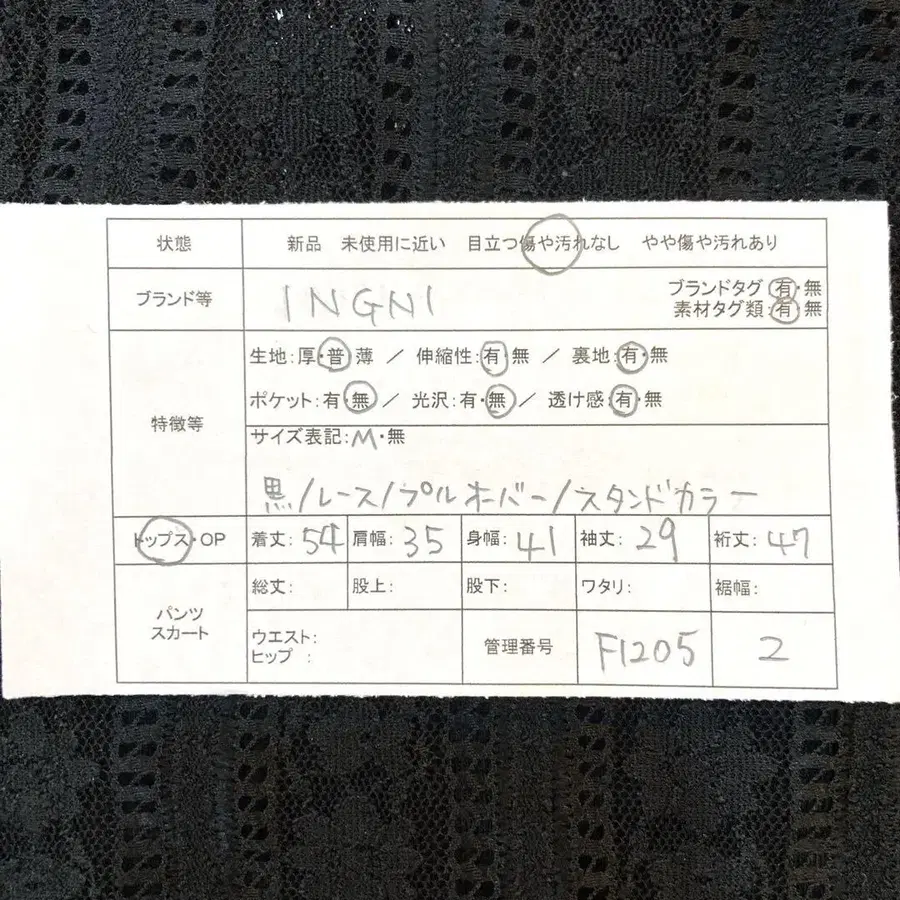 状態 新品 未使用に近い 目立つ傷や汚れなし やや傷や汚れあり
ブランド等 INGNI ブランドタグ:有・無
素材タグ類:有・無
特徴等 生地:厚・普・薄 / 伸縮性:有・無 / 裏地:有・無
ポケット:有・無 / 光沢:有・無 / 透け感:有・無
サイズ表記:M・無
黒/レース/プルオーバー/スタンドカラー
トップス・OP 着丈:54 肩幅:35 身幅:41 袖丈:29 裄丈:47
パンツ スカート 総丈: 股上: 股下: ワタリ: 裾幅:
ウエスト:
ヒップ : 管理番号 F1205 2